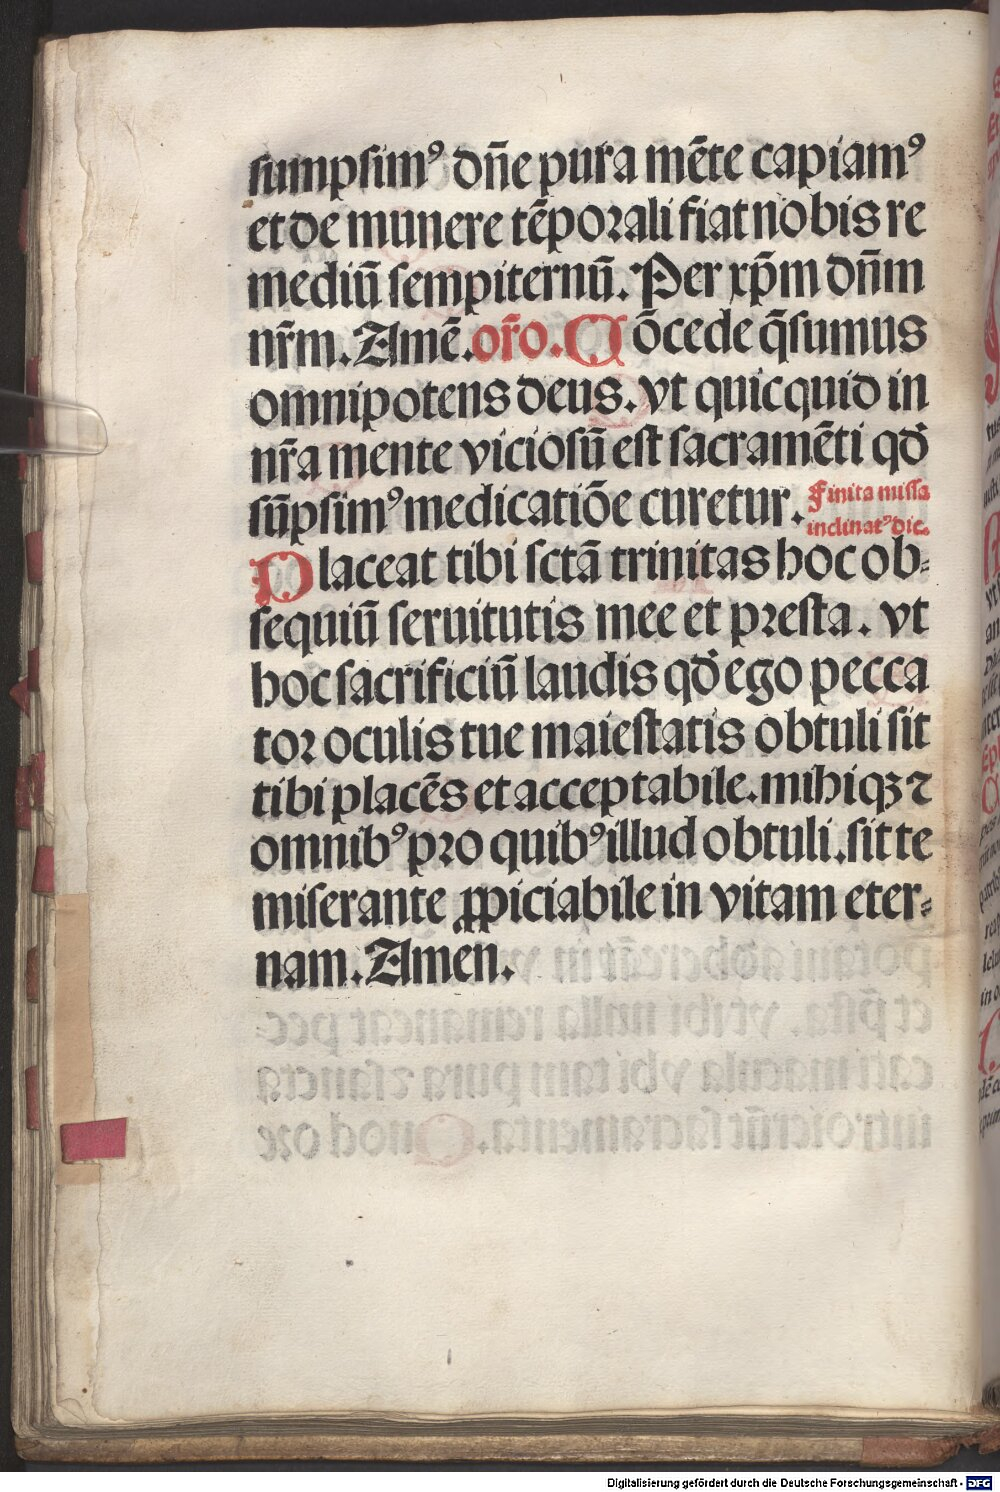 sumpsimꝰ dn̄e pura mēte capiamꝰ
et de munere tēporali fiat nobis re
mediū sempiternū. Per xp̄m dn̄m
nr̄m. Amē. or̄o. Cōcede q̄sumus
omnipotens deus. vt quicquid in
nr̄a mente viciosū est sacramēti qd̄
sūpsimꝰ medicatiōe curetur. Finita missa
inclinatꝰ dic.
Placeat tibi sctā trinitas hoc ob⸗
sequiū seruitutis mee et presta. vt
hoc sacrificiū laudis qd̄ ego pecca
tor oculis tue maiestatis obtuli sit
tibi placēs et acceptabile. mihiqꝫ ⁊
omnibꝰ pro quibꝰ illud obtuli. sit te
miserante ꝓpiciabile in vitam eter⸗
nam. Amen.
Digitalisierung gefördert durch die Deutsche Forschungsgemeinschaft - DFG